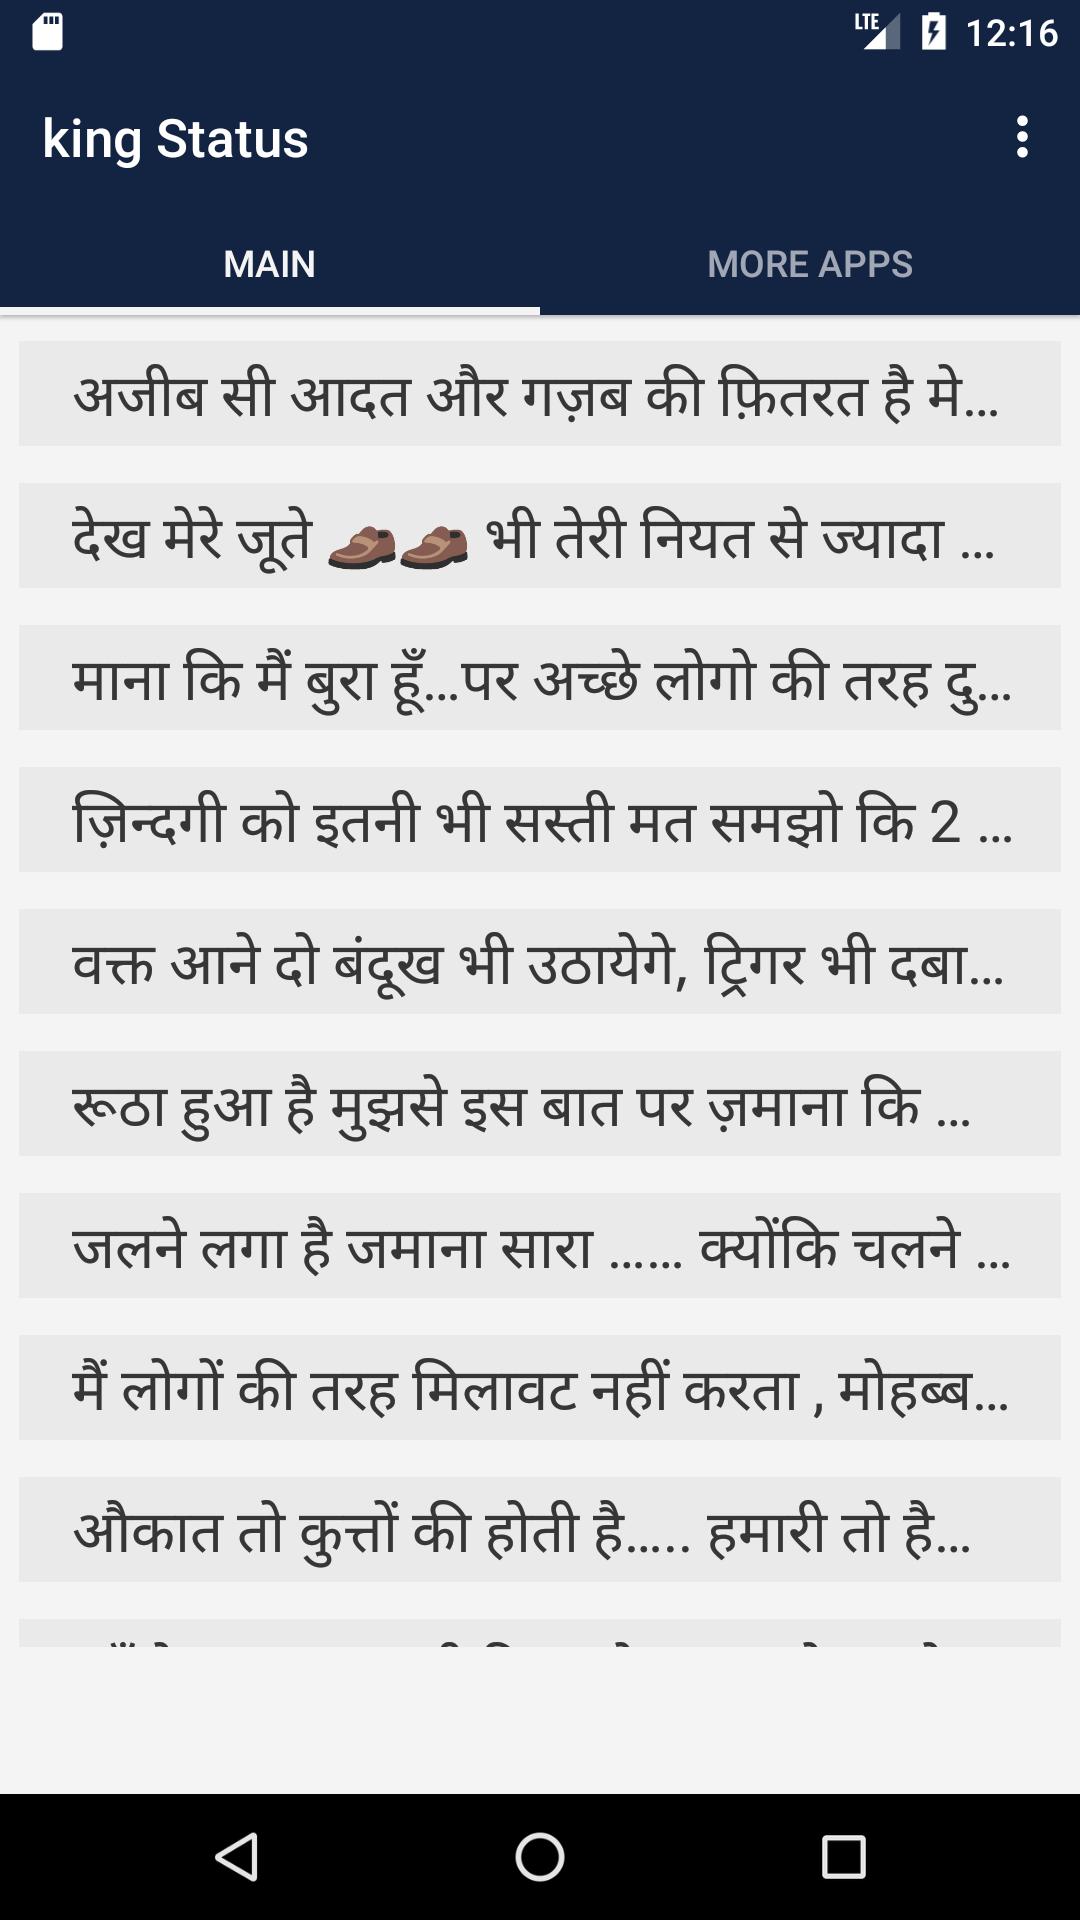 LTE 12:16
king Status
MAIN MORE APPS
अजीब सी आदत और गज़ब की फ़ितरत है मे...
देख मेरे जूते 👞👞 भी तेरी नियत से ज्यादा ...
माना कि मैं बुरा हूँ...पर अच्छे लोगो की तरह दु...
ज़िन्दगी को इतनी भी सस्ती मत समझो कि 2 ...
वक्त आने दो बंदूख भी उठायेगे, ट्रिगर भी दबा...
रूठा हुआ है मुझसे इस बात पर ज़माना कि ...
जलने लगा है जमाना सारा ...... क्योंकि चलने ...
मैं लोगों की तरह मिलावट नहीं करता , मोहब्ब...
औकात तो कुत्तों की होती है..... हमारी तो है...